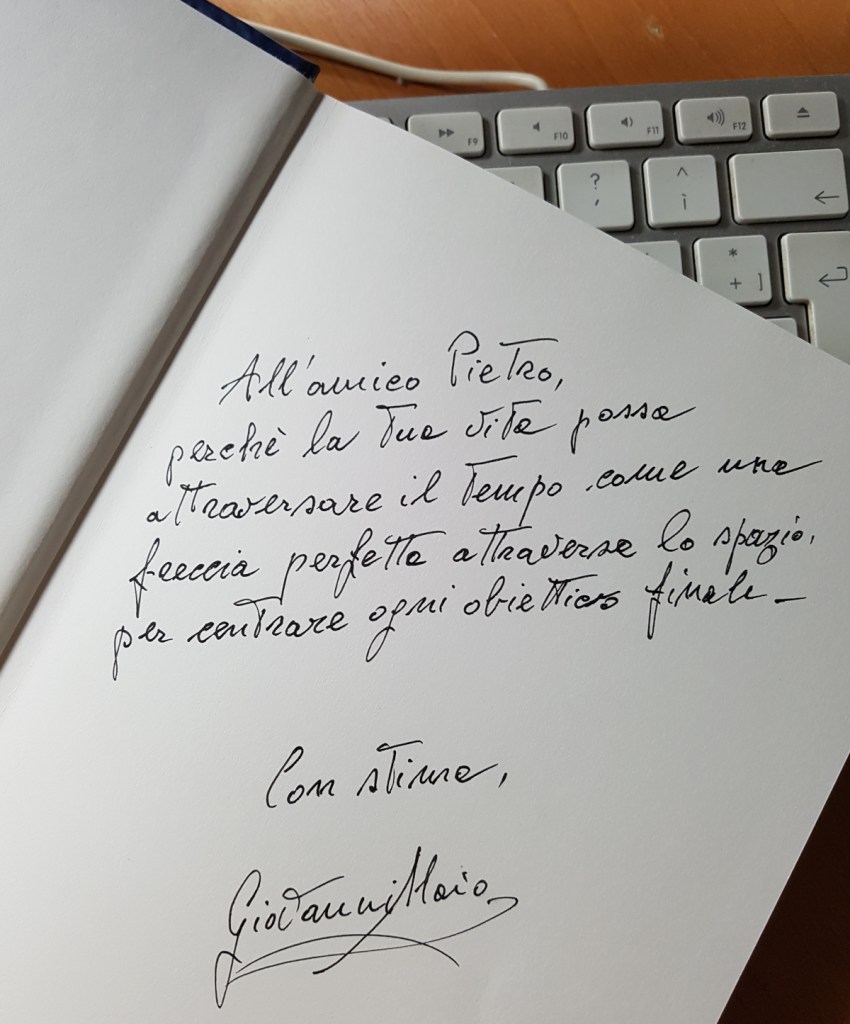 F9
F10
F11
F12
?
'
^
ì
*
+ ]
All'amico Pietro,
perchè la tua vita possa
attraversare il tempo come una
freccia perfetta attraversa lo spazio,
per centrare ogni obiettivo finale_
Con stima,
Giovanni Maio